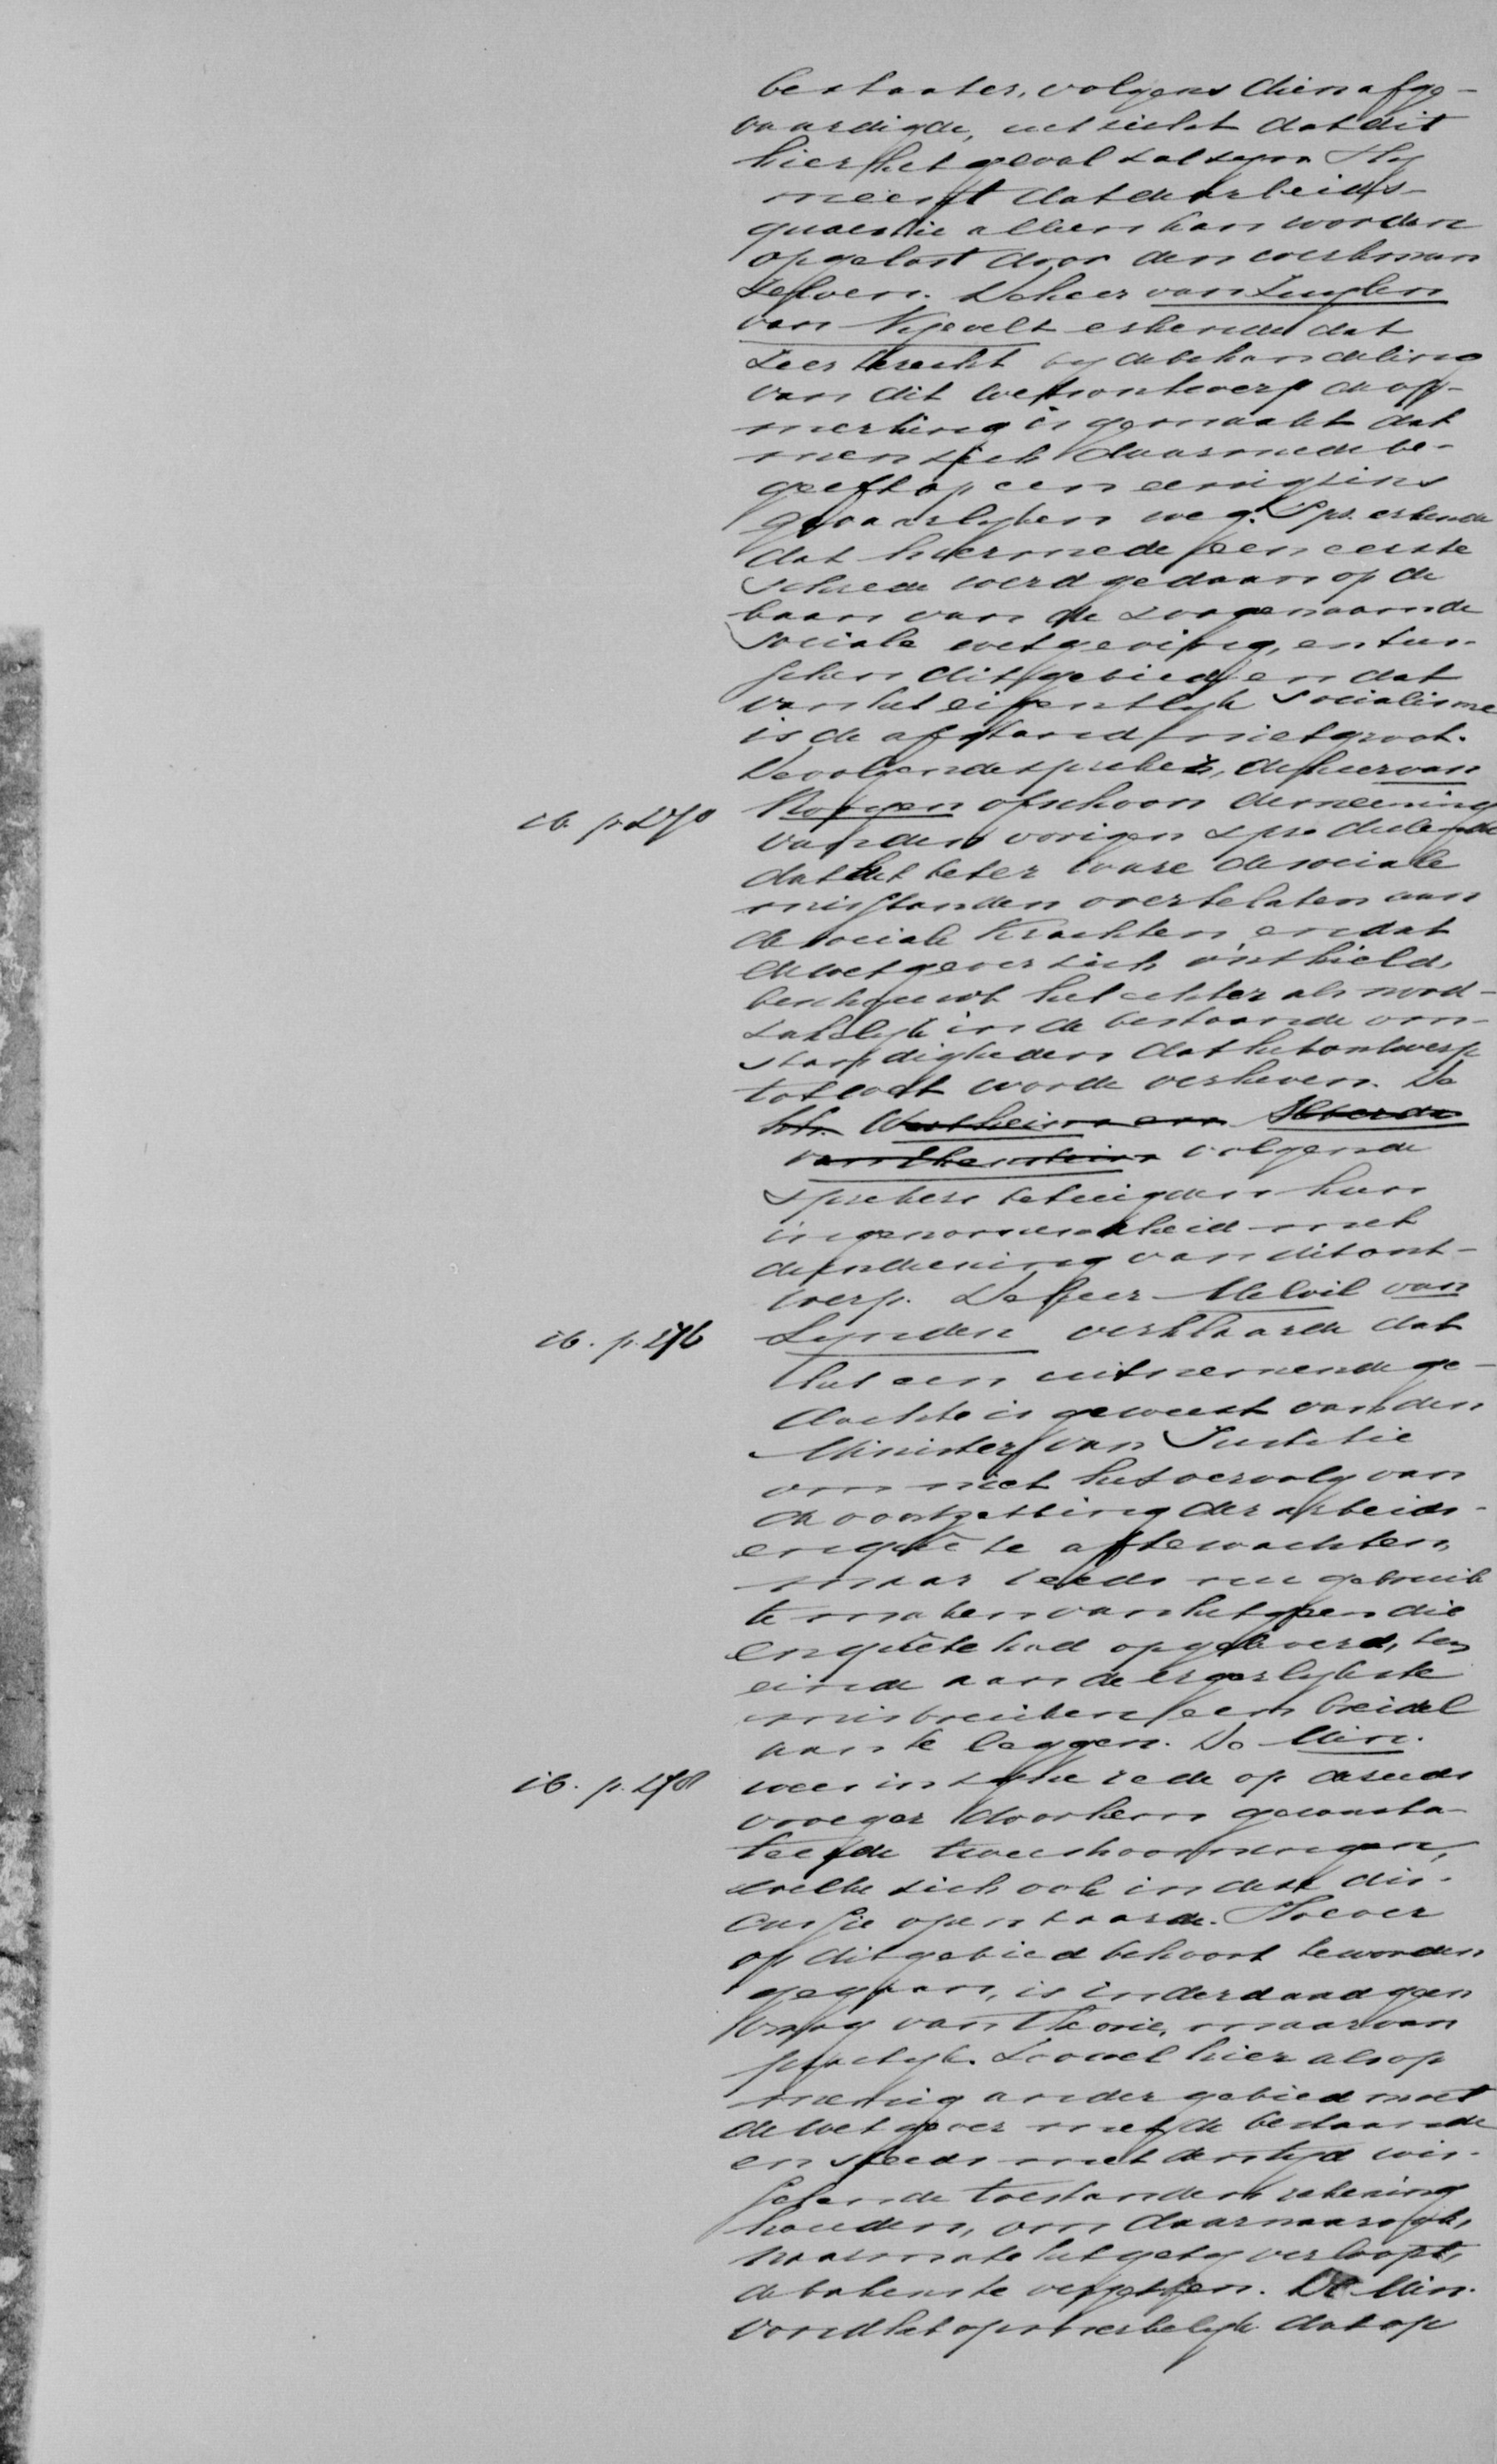 bestaat er, volgens dien afge-
vaardigde, uitzicht dat dit
hier het geval zal zijn. Hij
meent dat de arbeids-
quaestie alleen kan worden
opgelost door den werkman
zelven. De heer van Zuylen
van Nyevelt erkende dat
zeer terecht by de behandeling
van dit wetsontwerp de op-
merking is gemaakt dat
men zich daarmede be-
geeft op een eenigzins
gevaarlyken weg. Spr. erkende
dat hiermede een eerste
schrede werd gedaan op de
baan van de zoogenaamde
sociale wetgeving, en tus-
schen dit gebied en dat
van het eigentlyk socialisme
is de afstand niet groot.
De volgende spreker, de heer van
ib. p. 270 Rooyen ofschoon de meening
van den vorigen spr. deelende
dat het beter ware de sociale
misstanden over te laten aan
de sociale krachten en dat
de wetgever zich onthield,
beschouwt het echter als nood-
zakelyk in de bestaande om-
standigheden dat het ontwerp
tot wet worde verheven. De
hh. Wertheim en
volgende
sprekers betuigden hun
ingenomenheid met
de indiening van dit ont-
werp. De heer Melvil van
ib. p. 276 Lynden verklaarde dat
het een uitnemende ge-
dachte is geweest van den
Minister van Justitie
om niet het vervolg van
de voortzetting der arbeids-
enquête af te wachten,
maar reeds nu gebruik
te maken van hetgeen die
enquête had opgeleverd, ten
einde aan de ergerlykste
misbruiken een breidel
aan te leggen. De Min.
ib. p. 278 wees in zyne rede op de reeds
vroeger door hem geconsta-
teerde twee stroomingen,
welke zich ook in deze dis-
cussie openbaarde. Hoever
op dit gebied behoort te worden
gegaan, is inderdaad geen
vraag van theorie, maar van
practyk. Zoowel hier als op
menig ander gebied moet
de wetgever met de bestaande
en steeds met den tyd wis-
selende toestanden rekening
houden, om daarnaar ook,
naarmate het gety verloopt,
de bakens te verzetten. De Min.
vond het opmerkelyk dat op